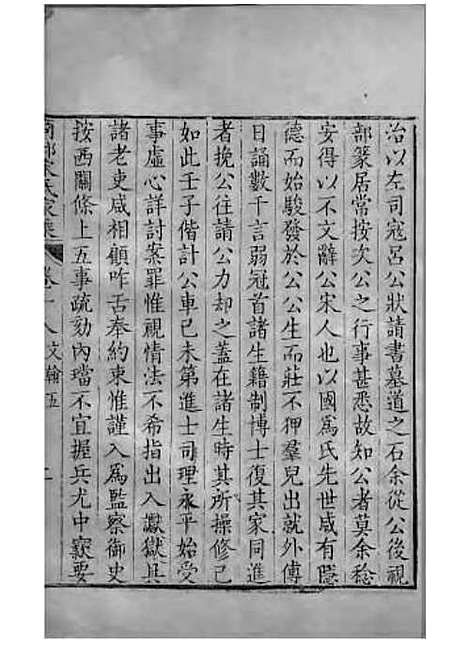 治以左司寇呂公狀請書墓道之石余從公後視
部篆居常按次公之行事甚悉故知公者莫余稔
安得以不文辭公宋人也以國爲氏先世咸有隱
德而始駿發於公公生而莊不狎羣兒出就外傅
日誦數千言弱冠首諸生籍制博士復其家同進
者挽公往請公力却之蓋在諸生時其所操修已
如此壬子偕計公車己未第進士司理永平始受
事虛心詳討案罪惟視情法不希指出入讞獄具
諸老吏咸相顧咋舌奉約束惟謹入爲監察御史
按西關條上五事疏劾內璫不宜握兵尤中竅要
宋氏家集 卷十八 文翰五